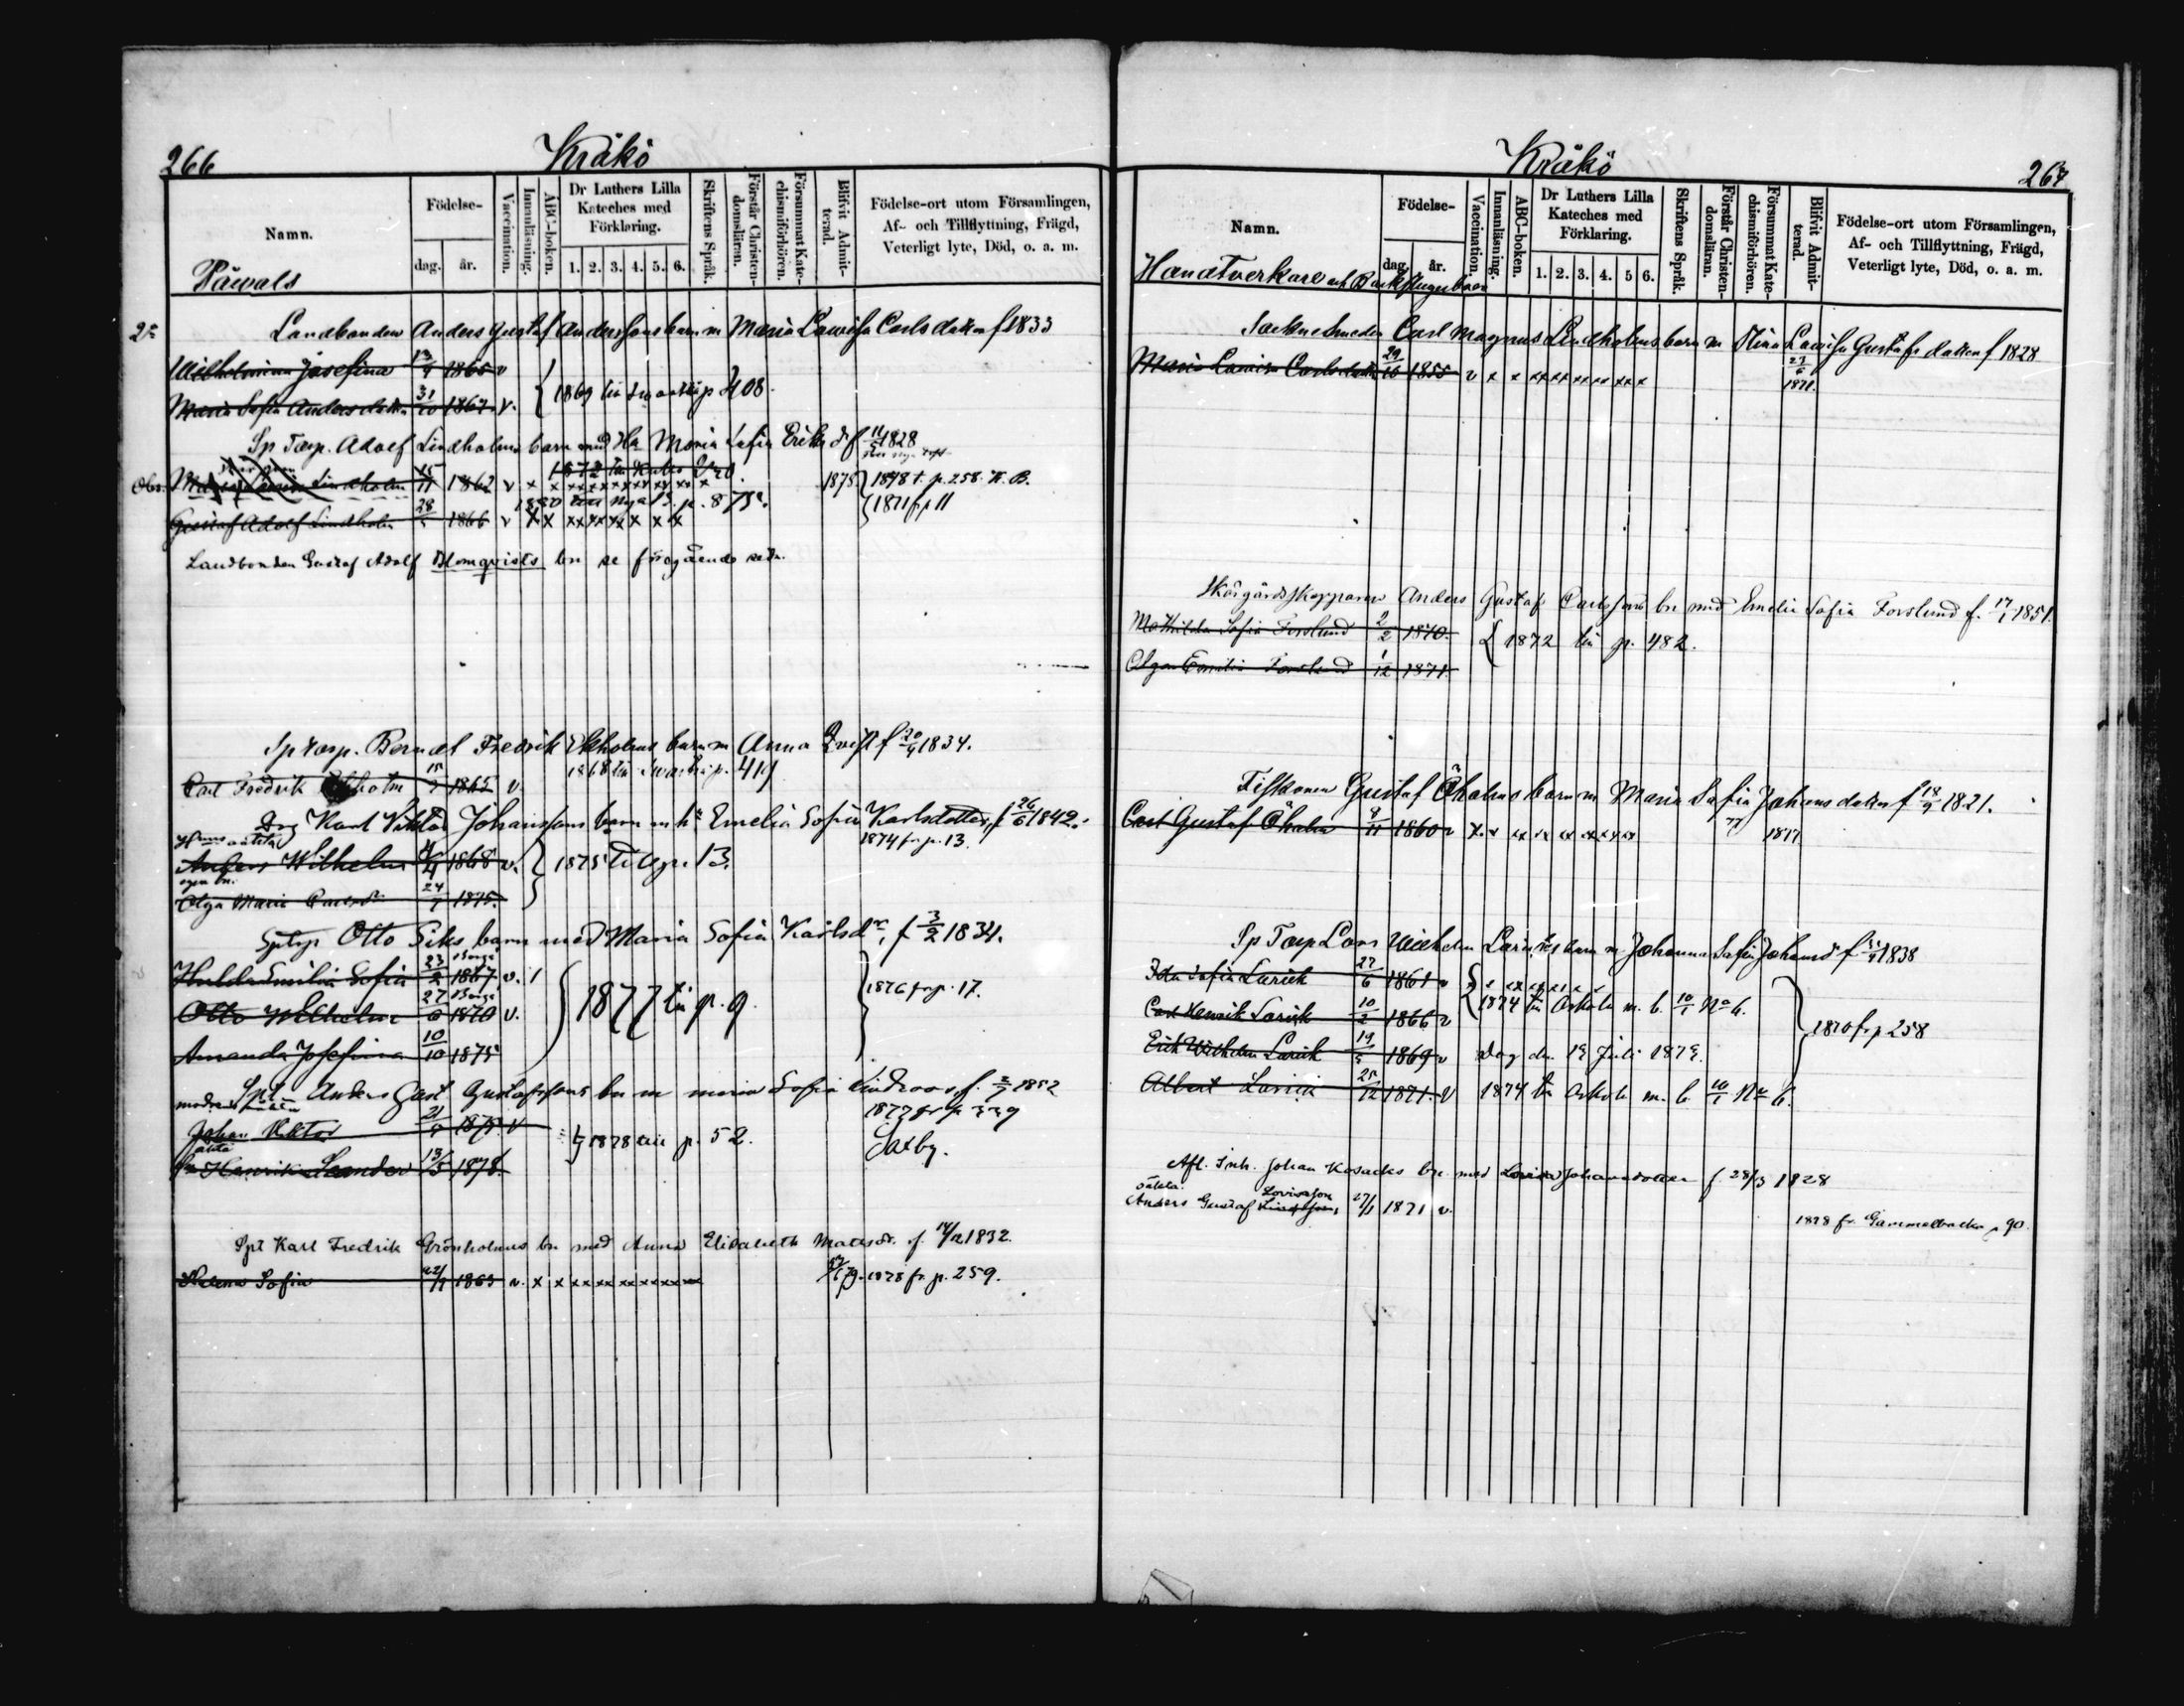 266
Kråkö
Namn.
Födelse-
dag.
år.
Vaccination.
Innanläsning.
ABC-boken.
Dr Luthers Lilla
Kateches med
Förklaring.
1. 2. 3. 4. 5. 6.
Skriftens Språk.
Förstår Christen-
domsläran.
Försummat Kate-
chismiförhören.
Blifvit Admit-
terad.
Födelse-ort utom Församlingen,
Af- och Tillflyttning, Frägd,
Veterligt lyte, Död, o. a. m.
Påwals
Landbonden Anders Gustaf Anderssons barn m Maria Lowisa Carlsdotter f 1833
Wilhelmina Josefina 1865 v
Maria Sofia Andersdotter 31/10 1867 v. 1869 till p 408
Sp Torp. Adolf Lindholms barn med Maria Sofia Eriksd f 11/5 1828
Obs. Lindholm 15/11 1862 v x 1872 x x x x x x 1878 1878 t. p. 258. K. B.
1880 till nya b. p. 875.
Gustaf Adolf Lindholm 28/5 1866 v x x xx xx xx x x 1871 fr p 11
Landbonden Gustaf Adolf Blomqvists bn se föregående sida.
Sp torp. Berndt Fredrik Ekholms barn m Anna Qvist f 20/9 1834.
Carl Fredrik Ekholm 15/3 1865 v. 1868 till p. 419
Drg Karl Viktor Johanssons barn m hu Emelia Sofia Karlsdotter, f 26/6 1842.
oäkta 1874 fr p. 13.
Anders Wilhelm 1868 v. 1875 till p. 13.
egna bn.
Olga Maria 24/7 1875.
Sptp Otto Siks barn med Maria Sofia Karlsdr, f 3/2 1834.
Hulda Emilia Sofia 23/2 1867 v. 1
Otto Wilhelm 27/6 1870 v. 1877 till p. 9. 1876 fr p. 17.
Amanda Josefina 10/10 1875
Spt Anders Gust Gustafssons bn m Maria Sofia Lindroos f. 1852
1877 fr p 339
Johan Viktor 21/5 1875 v 1878 till p. 52. Saxby.
Henrik Leander 13/5 1878.
Spt Karl Fredrik Grönholms bn med Anna Elisabeth Matsdr. f. 14/12 1832.
Helena Sofia 22/7 1863 v. x x xx xx xx xx xx 1878 fr p. 259.
Kråkö
267
Namn.
Födelse-
dag.
år.
Vaccination.
Innanläsning.
ABC-boken.
Dr Luthers Lilla
Kateches med
Förklaring.
1. 2. 3. 4. 5 6.
Skriftens Språk.
Förstår Christen-
domsläran.
Försummat Kate-
chismiförhören.
Blifvit Admit-
terad.
Födelse-ort utom Församlingen,
Af- och Tillflyttning, Frägd,
Veterligt lyte, Död, o. a. m.
Handtverkare och Backstuguboer
Sockne Smeden Carl Magnus Lindholms barn m Stina Lowisa Gustafsdotter f 1828
Maria Lowisa Carlsdotter 29/10 1855 v x x xx xx xx xx x x 1871.
Skärgårdsskepparen Anders Gustaf Carlssons bn med Emelia Sofia Forslund f. 17/1 1851.
Mathilda Sofia Forslund 2/2 1870. 1872 till p. 482.
Olga Emilia Forslund 1/12 1871.
Fiskaren Gustaf Öholms barn m Maria Sofia Johansdotter f 18/9 1821.
Carl Gustaf Öholm 9/11 1860 v x. x xx xx xx xx xx 1877
Sp Torp Lars Wilhelm Lariks barn m Johanna Sofia Johansd f 1838
Ida Sofia Larik 27/6 1861 v x x xx xx x x x
Carl Henrik Larik 10/2 1866 v 1874 till Askola m. b. 10/1 No 6. 1870 fr p 258
Erik Wilhelm Larik 19/5 1869 v Dog den 19 Juli 1879.
Albert Larik 25/12 1871. v 1874 till Askola m. b. 10/1 No 6.
Afl. Inh. Johan Kosacks bn med Lovisa Johansdotter f. 28/3 1828
oäkta
Anders Gustaf Lovisason 27/1 1871 v.
1878 fr. Gammelbacka p 90.